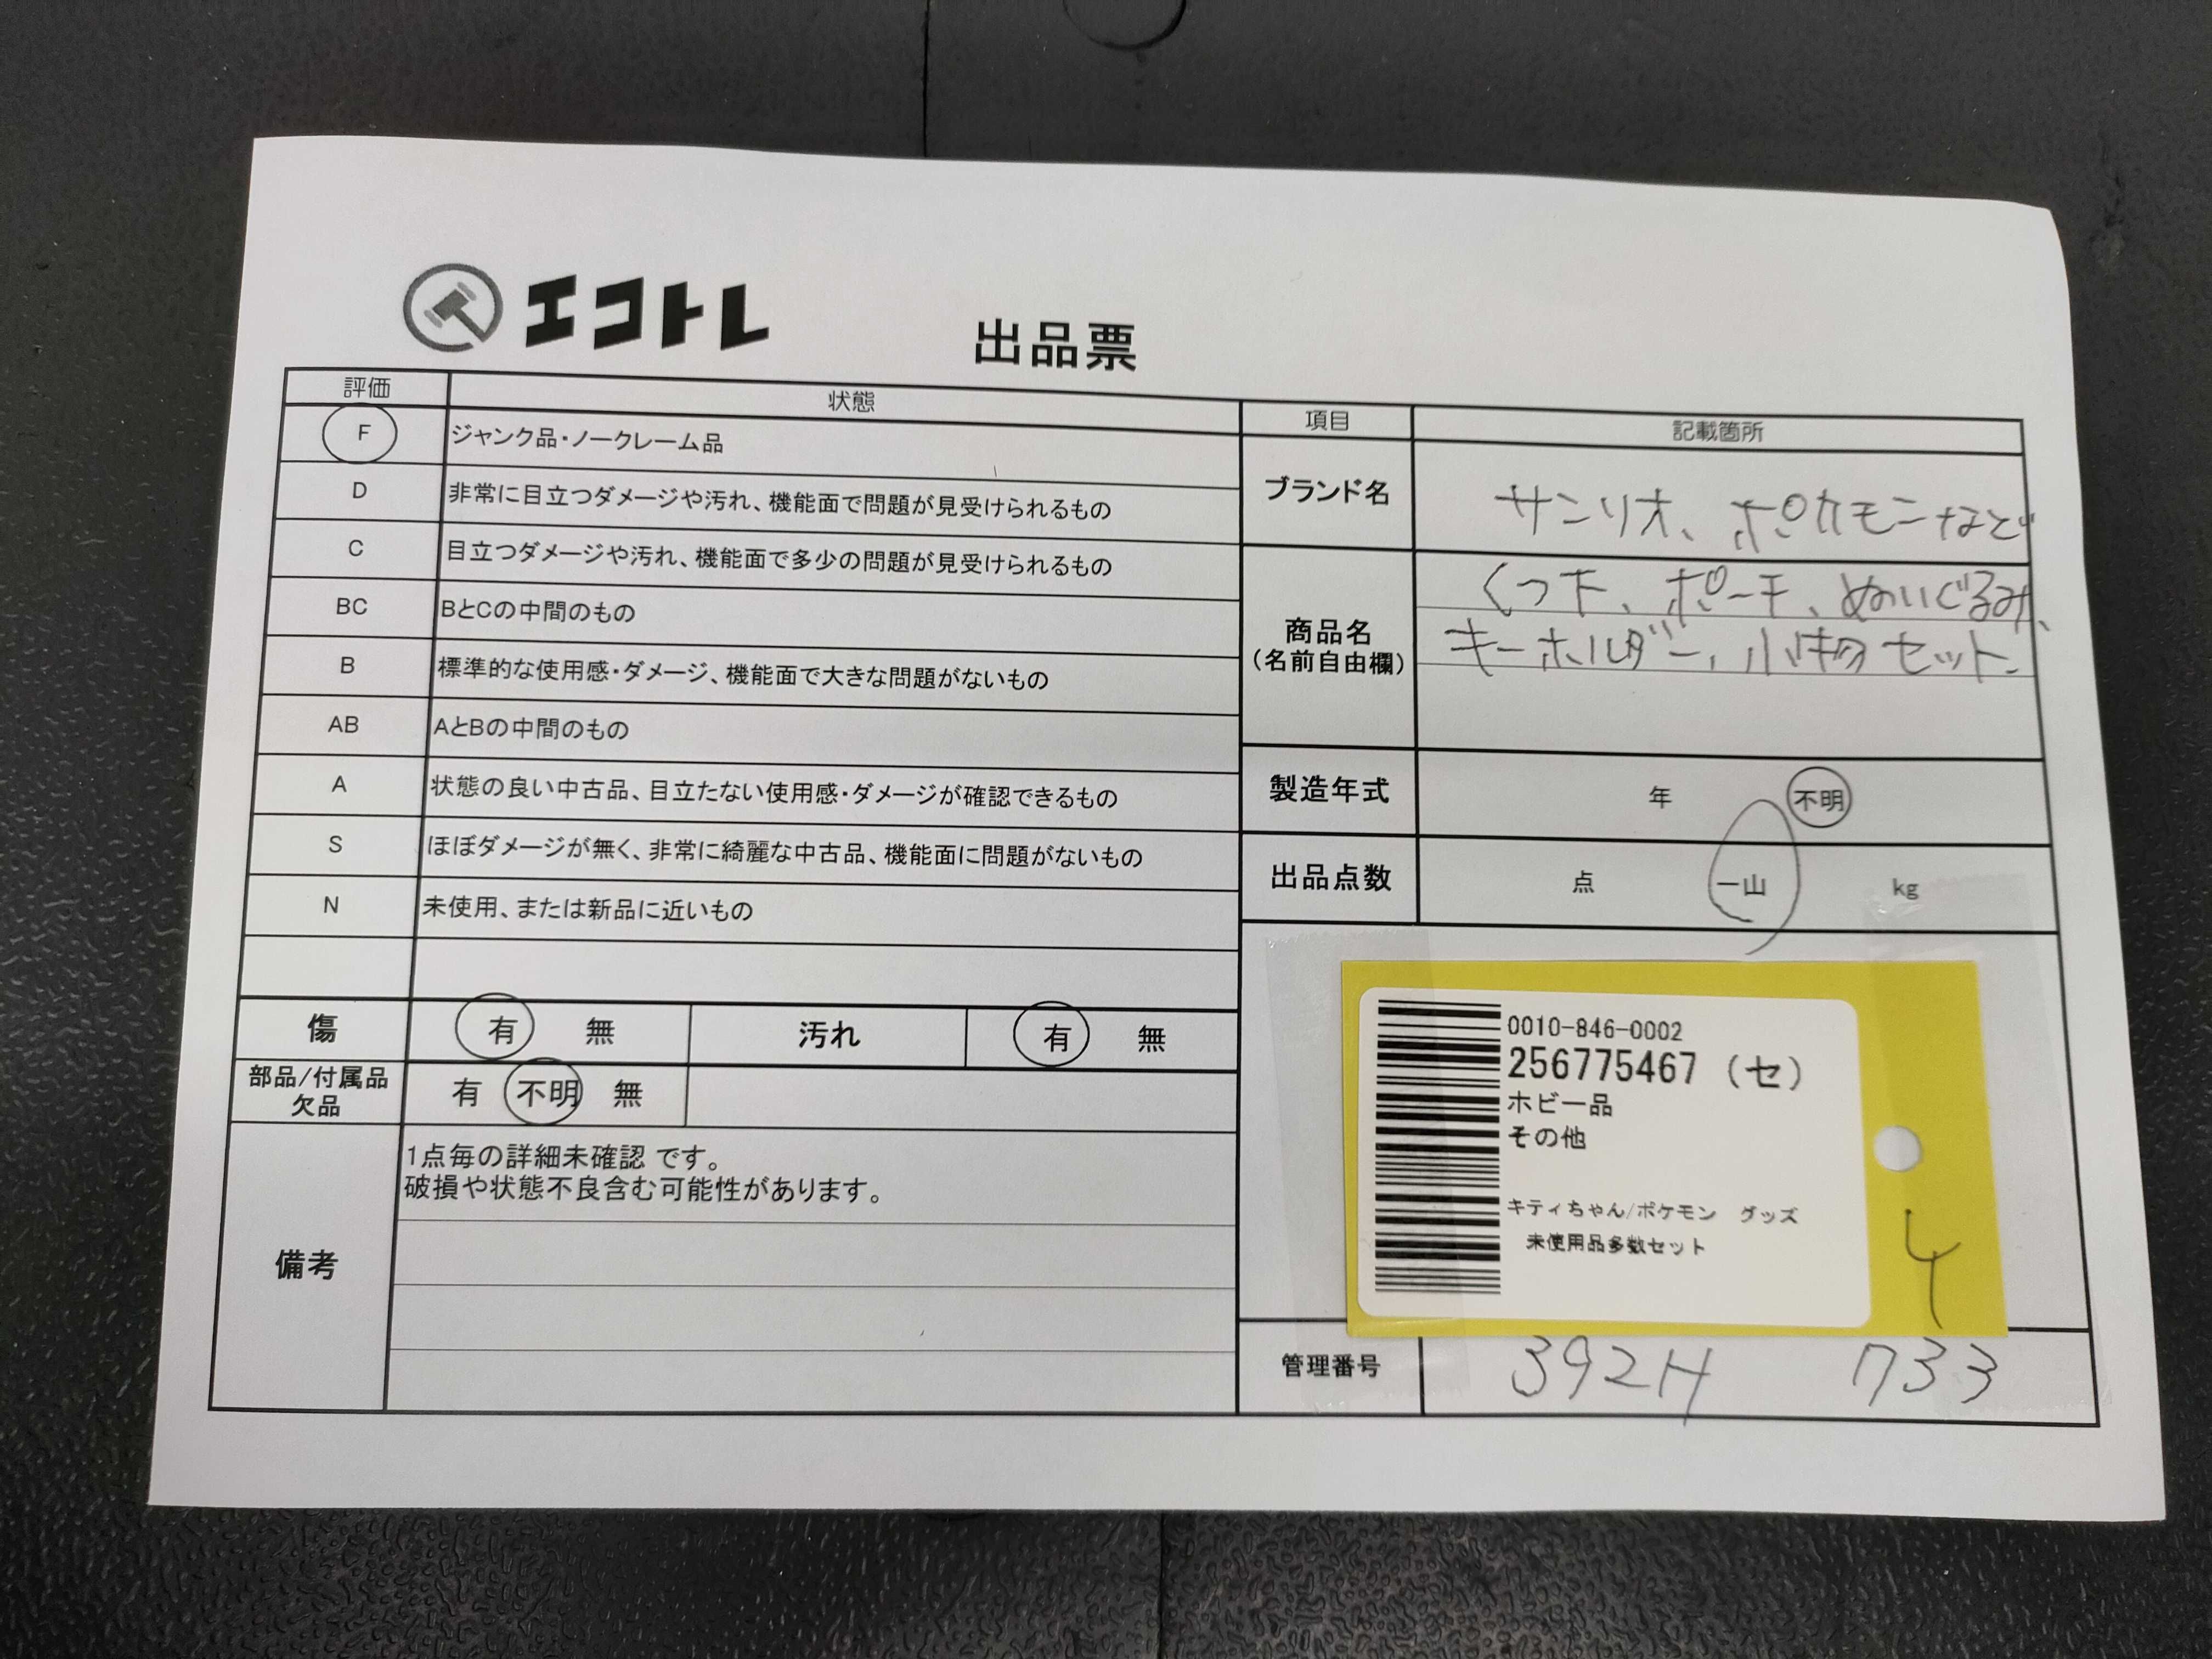 エコトレ
出品票
評価 状態
F ジャンク品・ノークレーム品
D 非常に目立つダメージや汚れ、機能面で問題が見受けられるもの
C 目立つダメージや汚れ、機能面で多少の問題が見受けられるもの
BC BとCの中間のもの
B 標準的な使用感・ダメージ、機能面で大きな問題がないもの
AB AとBの中間のもの
A 状態の良い中古品、目立たない使用感・ダメージが確認できるもの
S ほぼダメージが無く、非常に綺麗な中古品、機能面に問題がないもの
N 未使用、または新品に近いもの
傷 有 無 汚れ 有 無
部品/付属品
欠品
有 不明 無
備考
1点毎の詳細未確認 です。
破損や状態不良含む可能性があります。
項目 記載箇所
ブランド名 サンリオ、ポケモンなど
商品名
(名前自由欄)
くつ下、ポーチ、ぬいぐるみ、
キーホルダー、小物セット、
製造年式 年 不明
出品点数 点 一山 kg
0010-846-0002
256775467 (セ)
ホビー品
その他
キティちゃん/ポケモン グッズ
未使用品多数セット
4
管理番号 392H 733